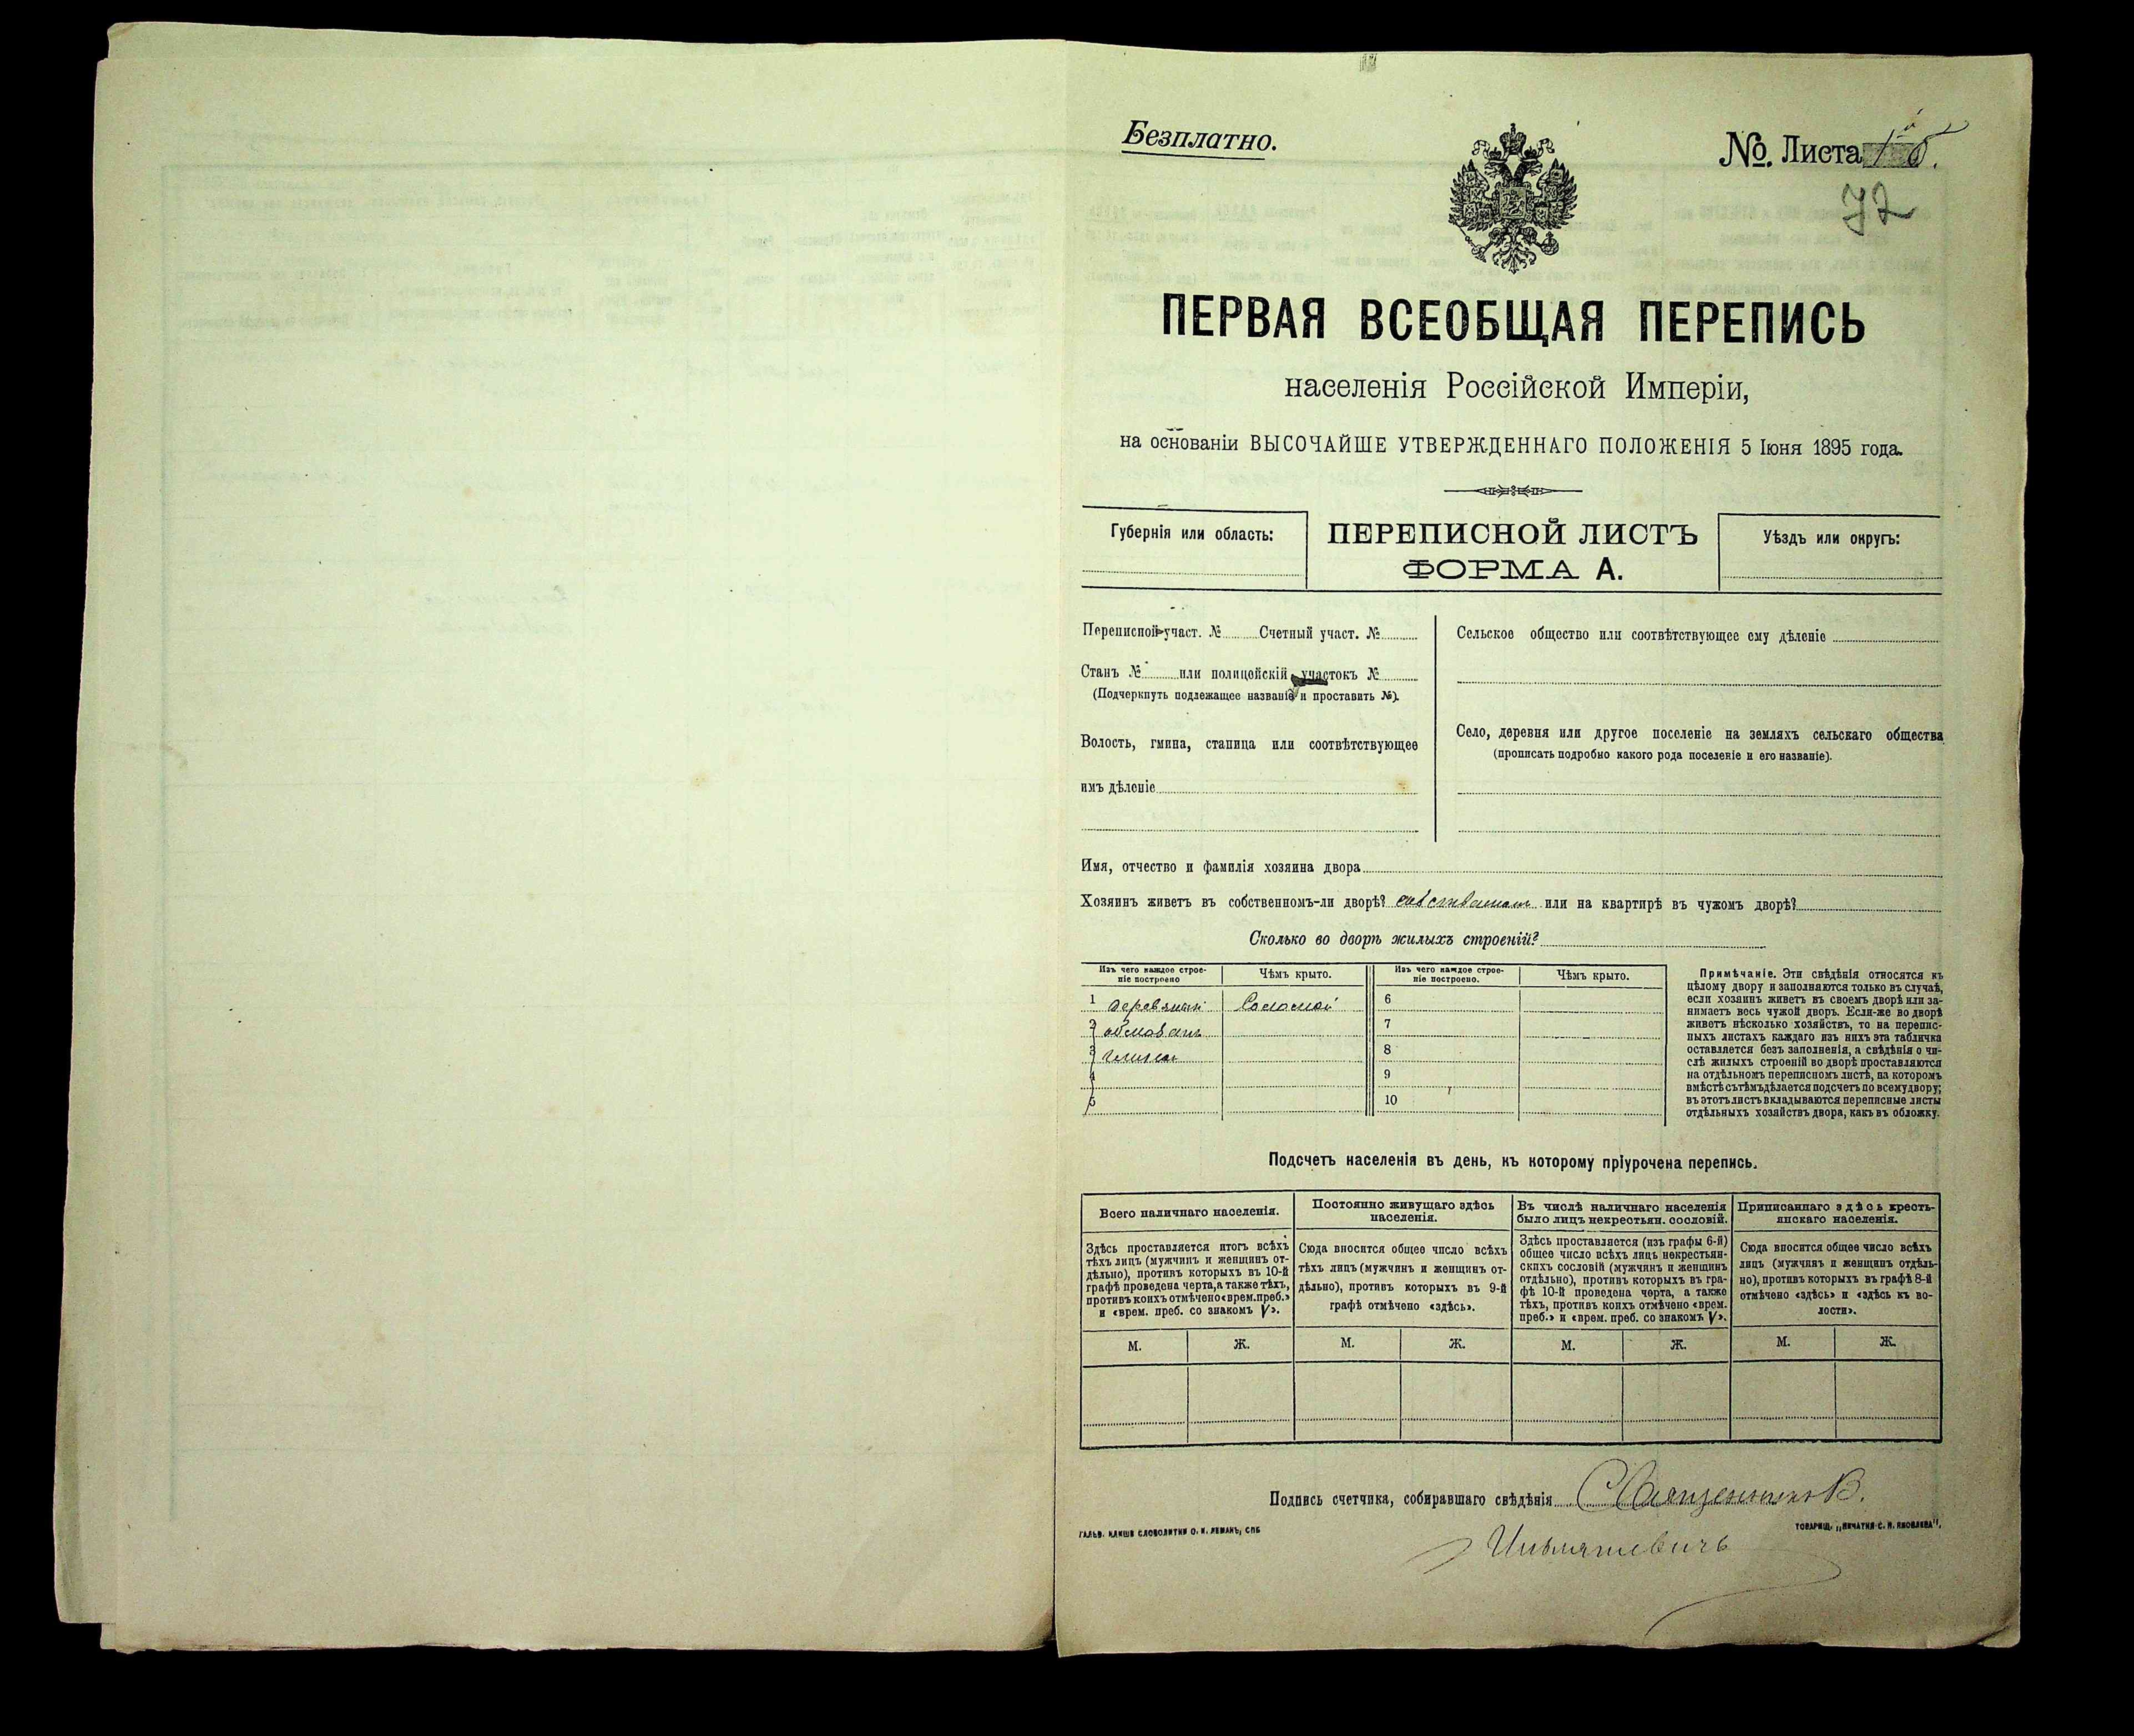 Безплатно.
№. Листа
72
ПЕРВАЯ ВСЕОБЩАЯ ПЕРЕПИСЬ
населенія Россійской Имперіи,
на основаніи ВЫСОЧАЙШЕ УТВЕРЖДЕННАГО ПОЛОЖЕНІЯ 5 Іюня 1895 года.
Губернія или область:
ПЕРЕПИСНОЙ ЛИСТЪ
ФОРМА А.
Уѣздъ или округъ:
Переписной участ. № Счетный участ. №
Станъ № или полицейскій участокъ №
(Подчеркнуть подлежащее названіе и проставить №).
Волость, гмина, станица или соотвѣтствующее
имъ дѣленіе
Сельское общество или соотвѣтствующее ему дѣленіе
Село, деревня или другое поселеніе на земляхъ сельскаго общества
(прописать подробно какого рода поселеніе и его названіе).
Имя, отчество и фамилія хозяина двора
Хозяинъ живетъ въ собственномъ-ли дворѣ? или на квартирѣ въ чужомъ дворѣ?
Сколько во дворѣ жилыхъ строеній?
Изъ чего каждое строе-
ніе построено
Чѣмъ крыто.
Изъ чего каждое строе-
ніе построено.
Чѣмъ крыто.
1 деревяный Соломой
2 обмазанъ
3 глиной
4
5
6
7
8
9
10
Примѣчаніе. Эти свѣдѣнія относятся къ
цѣлому двору и заполняются только въ случаѣ,
если хозяинъ живетъ въ своемъ дворѣ или за-
нимаетъ весь чужой дворъ. Если-же во дворѣ
живетъ нѣсколько хозяйствъ, то на перепис-
ныхъ листахъ каждаго изъ нихъ эта табличка
оставляется безъ заполненія, а свѣдѣнія о чи-
слѣ жилыхъ строеній во дворѣ проставляются
на отдѣльномъ переписномъ листѣ, на которомъ
вмѣстѣ съ тѣмъ дѣлается подсчетъ по всему двору;
въ этотъ листъ вкладываются переписные листы
отдѣльныхъ хозяйствъ двора, какъ въ обложку.
Подсчетъ населенія въ день, къ которому пріурочена перепись.
Всего наличнаго населенія.
Постоянно живущаго здѣсь
населенія.
Въ числѣ наличнаго населенія
было лицъ некрестьян. сословій.
Приписаннаго здѣсь кресть-
янскаго населенія.
Здѣсь проставляется итогъ всѣхъ
тѣхъ лицъ (мужчинъ и женщинъ от-
дѣльно), противъ которыхъ въ 10-й
графѣ проведена черта, а также тѣхъ,
противъ коихъ отмѣчено «врем. преб.»
и «врем. преб. со знакомъ V».
Сюда вносится общее число всѣхъ
тѣхъ лицъ (мужчинъ и женщинъ от-
дѣльно), противъ которыхъ въ 9-й
графѣ отмѣчено «здѣсь».
Здѣсь проставляется (изъ графы 6-й)
общее число всѣхъ лицъ некрестьян-
скихъ сословій (мужчинъ и женщинъ
отдѣльно), противъ которыхъ въ гра-
фѣ 10-й проведена черта, а также
тѣхъ, противъ коихъ отмѣчено «врем.
преб.» и «врем. преб. со знакомъ V».
Сюда вносится общее число всѣхъ
лицъ (мужчинъ и женщинъ отдѣль-
но), противъ которыхъ въ графѣ 8-й
отмѣчено «здѣсь» и «здѣсь къ во-
лости».
М. Ж. М. Ж. М. Ж. М. Ж.
Подпись счетчика, собиравшаго свѣдѣнія Священникъ В.
ГАЛЬВ. КЛИШЕ СЛОВОЛИТНИ О. И. ЛЕМАНЪ, СПБ
ТОВАРИЩ. „ПЕЧАТНЯ С. П. ЯКОВЛЕВА".